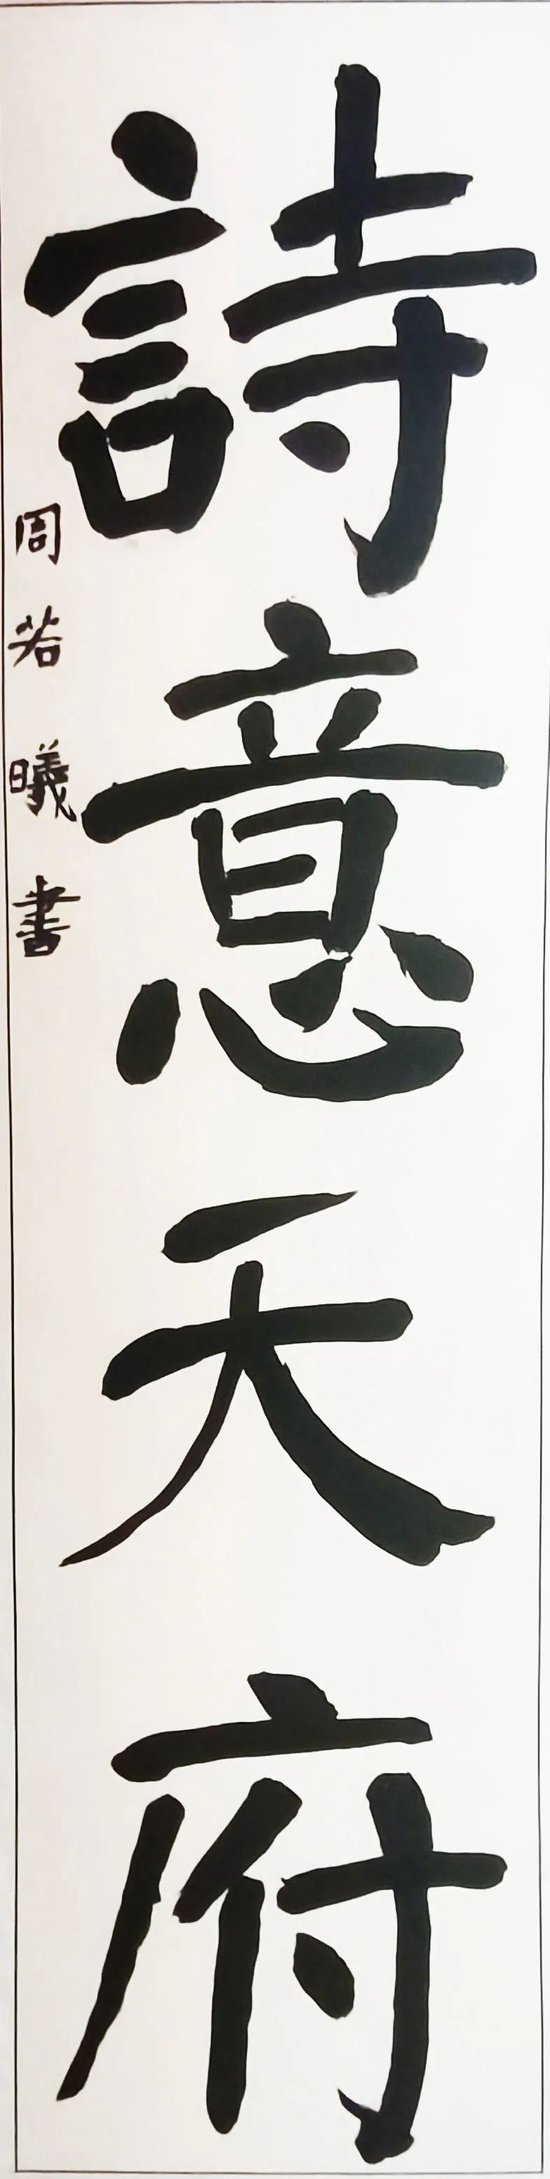 詩意天府
周若曦書